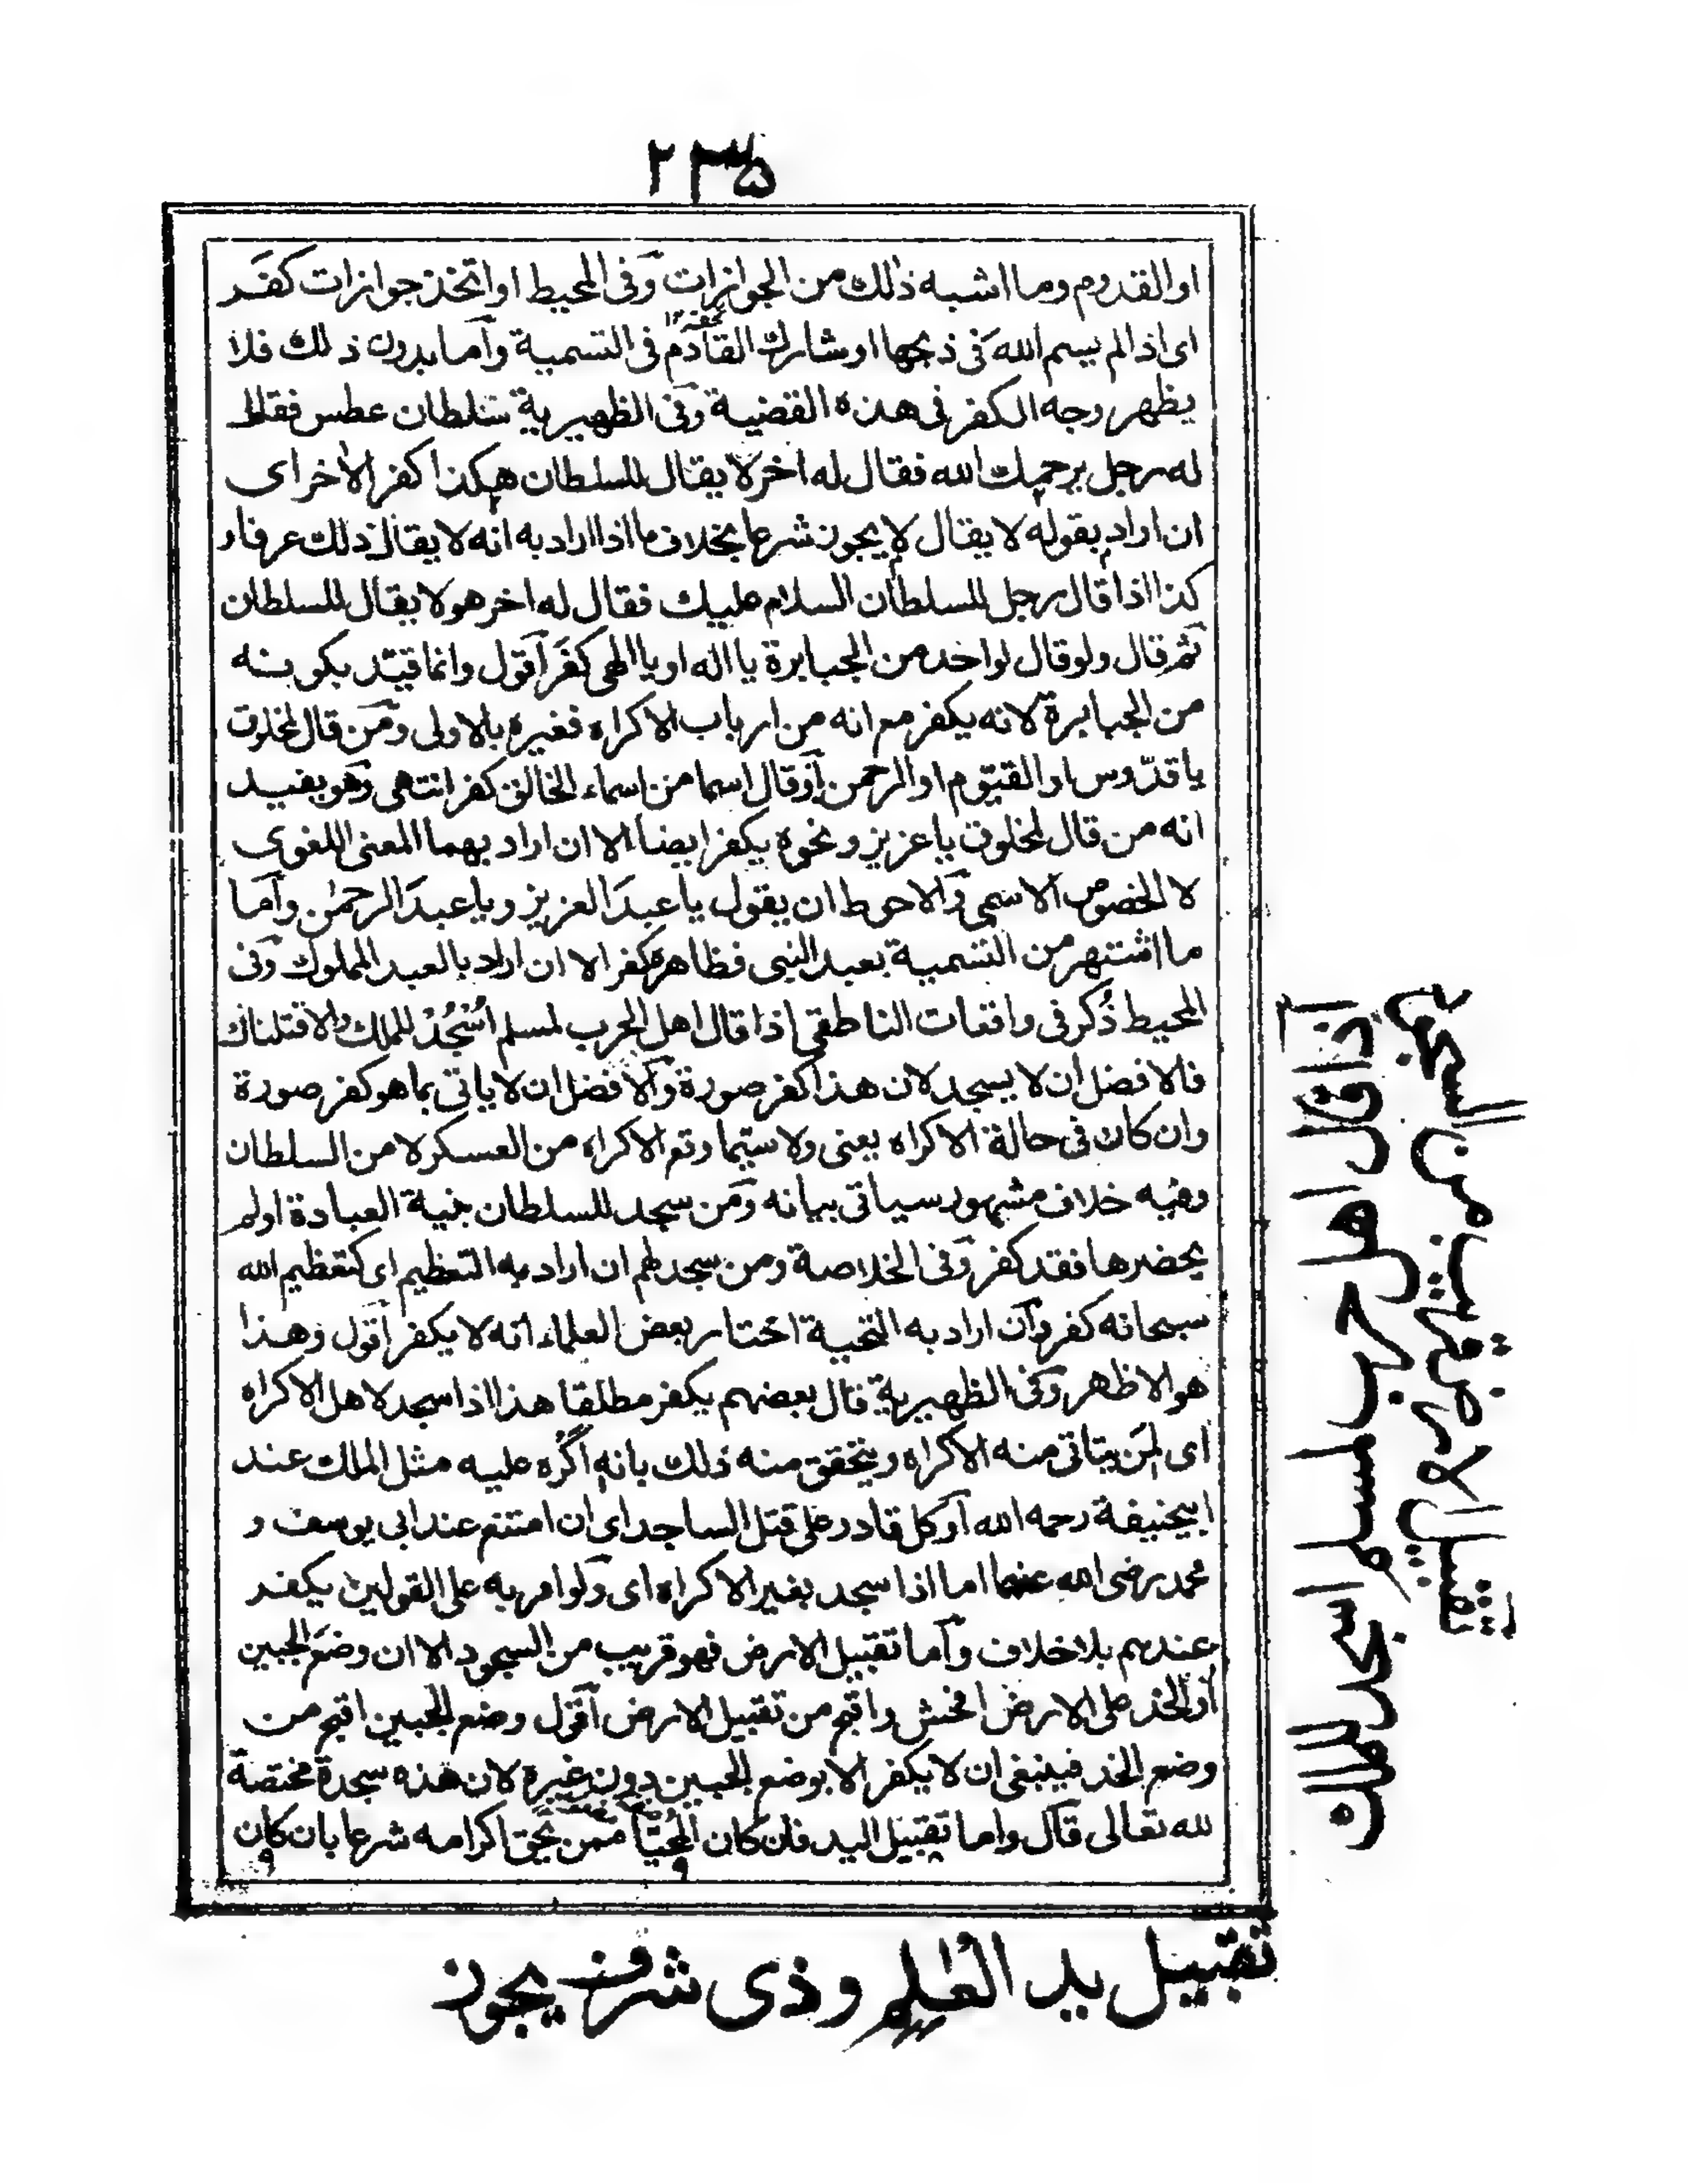 ٢٣٥
او القدوم وما اشبه ذلك من الجوازات وفى المحيط او اتخذ جوازات كفر
اى اذا لم يسم الله فى ذبحها او شارك القادم فى التسمية واما بدون ذلك فلا
يظهر وجه الكفر فى هذه القضية وفى الظهيرية سلطان عطس فقال
له رجل يرحمك الله فقال له اخر لا يقال للسلطان هكذا كفر الاخر اى
ان اراد بقوله لا يقال لا يجوز شرعا بخلاف ما اذا اراد به انه لا يقال ذلك عرفا و
كذا اذا قال رجل للسلطان السلام عليك فقال له اخر هو لا يقال للسلطان
ثم قال ولو قال لواحد من الجبابرة يا اله او يا الهى كفر اقول وانما قيّد بكونه
من الجبابرة لانه يكفر مع انه من ارباب الاكراه فغيره بالاولى ومن قال لمخلوق
يا قدّوس او القيّوم او الرحمن او قال اسما من اسماء الخالق كفر انتهى وهو يفيد
انه من قال لمخلوق يا عزيز ونحوه يكفر ايضا الا ان اراد بهما المعنى اللغوى
لا الخصوص الاسمى والاحوط ان يقول يا عبد العزيز ويا عبد الرحمن واما
ما اشتهر من التسمية بعبد النبى فظاهره كفر الا ان اراد بالعبد المملوك وفى
المحيط ذُكر فى واقعات الناطقى اذا قال اهل الحرب لمسلم اُسْجُدْ للملك والا قتلناك
فالافضل ان لا يسجد لان هذا كفر صورة والافضل ان لا ياتى بما هو كفر صورة
وان كان فى حالة الاكراه يعنى ولا سيّما وقع الاكراه من العسكر لا من السلطان
وفيه خلاف مشهور سياتى بيانه ومن سجد للسلطان بنية العبادة او لم
يحضرها فقد كفر وفى الخلاصة ومن سجد لهم ان اراد به التعظيم اى كتعظيم الله
سبحانه كفر وان اراد به التحية اختار بعض العلماء انه لا يكفر اقول وهذا
هو الاظهر وفى الظهيرية قال بعضهم يكفر مطلقا هذا اذا سجد لاهل الاكراه
اى لمن يتاتى منه الاكراه ويتحقق منه ذلك بانه اكره عليه مثل الملك عند
ابيحنيفة رحمه الله او كل قادر على قتل الساجد اى ان امتنع عند ابى يوسف و
محمد رضى الله عنهما اما اذا سجد بغير الاكراه اى ولو امر به على القولين يكفر
عندهم بلا خلاف واما تقبيل الارض فهو قريب من السجود الا ان وضع الجبين
او الخد على الارض افحش واقبح من تقبيل الارض اقول وضع الجبين اقبح من
وضع الخد فينبغى ان لا يكفر الا بوضع الجبين دون غيره لان هذه سجدة مختصة
لله تعالى قال واما تقبيل اليد فان كان المُحيّا ممن يحق اكرامه شرعا بان كان
اذا قال اهل حرب لمسلم اسجد للملك
تقبيل الارض قريب من السجود
تقبيل يد العالم وذى شرف يجوز